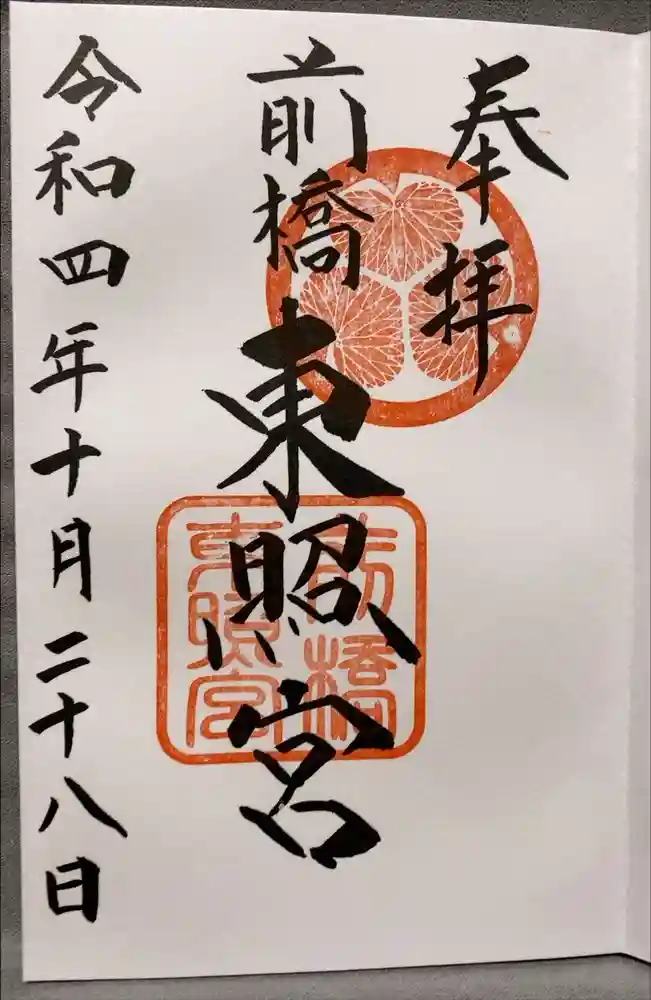 奉拝
前橋
東照宮
令和四年十月二十八日
前橋
東照宮